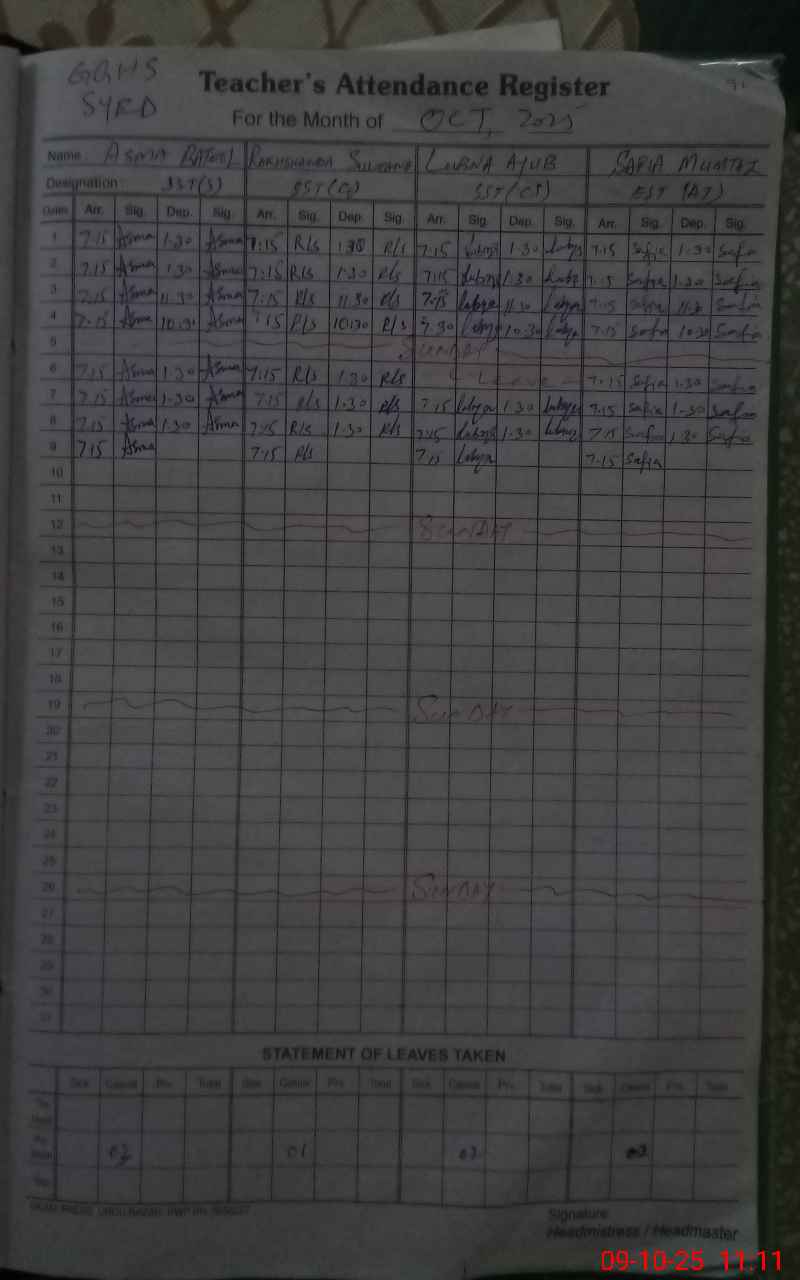 GGHS
SYRD
Teacher's Attendance Register
For the Month of OCT, 2025
Name ASMA BATOOL RAKHSHANDA SULTANA LUBNA AYUB SAFIA MUMTAZ
Designation: SST(S) SST(G) SST(CS) EST (AT)
Dates Arr. Sig. Dep. Sig. Arr. Sig. Dep. Sig. Arr. Sig. Dep. Sig. Arr. Sig. Dep. Sig.
1 7.15 Asma 1.30 Asma 7:15 R/s 1:30 R/s 7.15 1.30 7.15 Safia 1.30 Safia
2 7.15 Asma 1.30 Asma 7:15 R/s 1.30 R/s 7.15 1.30 7.15 Safia 1.30 Safia
3 7.15 Asma 11.30 Asma 7:15 R/s 11.30 R/s 7.15 11.30 7.15 Safia 11.30 Safia
4 7.15 Asma 10.30 Asma 7.15 R/s 10:30 R/s 7.30 10.30 7.15 Safia 10.30 Safia
5 SUNDAY
6 7.15 Asma 1.30 Asma 7.15 R/s 1.30 R/s Leave 7.15 Safia 1.30 Safia
7 7.15 Asma 1.30 Asma 7.15 R/s 1.30 R/s 7.15 1.30 7.15 Safia 1.30 Safia
8 7.15 Asma 1.30 Asma 7.15 R/s 1.30 R/s 7.15 1.30 7.15 Safia 1.30 Safia
9 7.15 Asma 7.15 R/s 7.15 7.15 Safia
10
11
12 SUNDAY
13
14
15
16
17
18
19 SUNDAY
20
21
22
23
24
25
26 SUNDAY
27
28
29
30
31
STATEMENT OF LEAVES TAKEN
Sick Casual Prv. Total Sick Casual Prv. Total Sick Casual Prv. Total Sick Casual Prv. Total
01
Signature
Headmistress / Headmaster
09-10-25 11.11